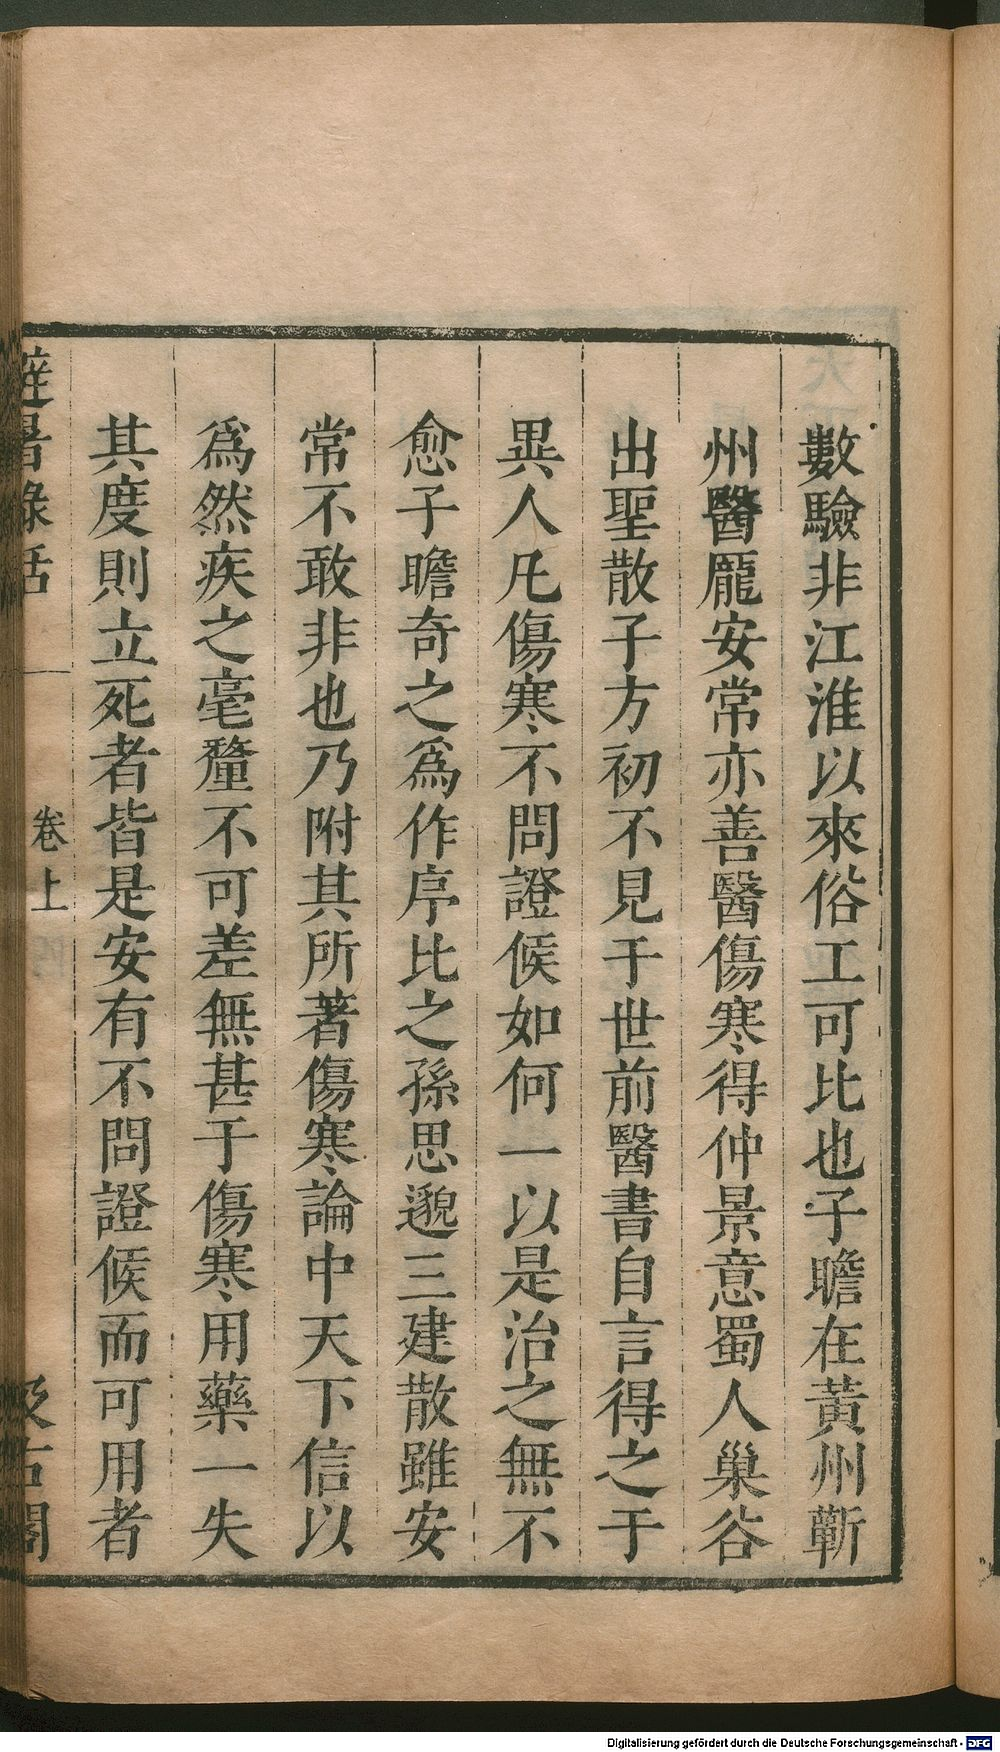 數驗非江淮以來俗工可比也子瞻在黃州蘄
州醫龐安常亦善醫傷寒得仲景意蜀人巢谷
出聖散子方初不見于世前醫書自言得之于
異人凡傷寒不問證候如何一以是治之無不
愈子瞻奇之爲作序比之孫思邈三建散雖安
常不敢非也乃附其所著傷寒論中天下信以
爲然疾之毫釐不可差無甚于傷寒用藥一失
其度則立死者皆是安有不問證候而可用者
避暑錄話 卷上 汲古閣
Digitalisierung gefördert durch die Deutsche Forschungsgemeinschaft - DFG